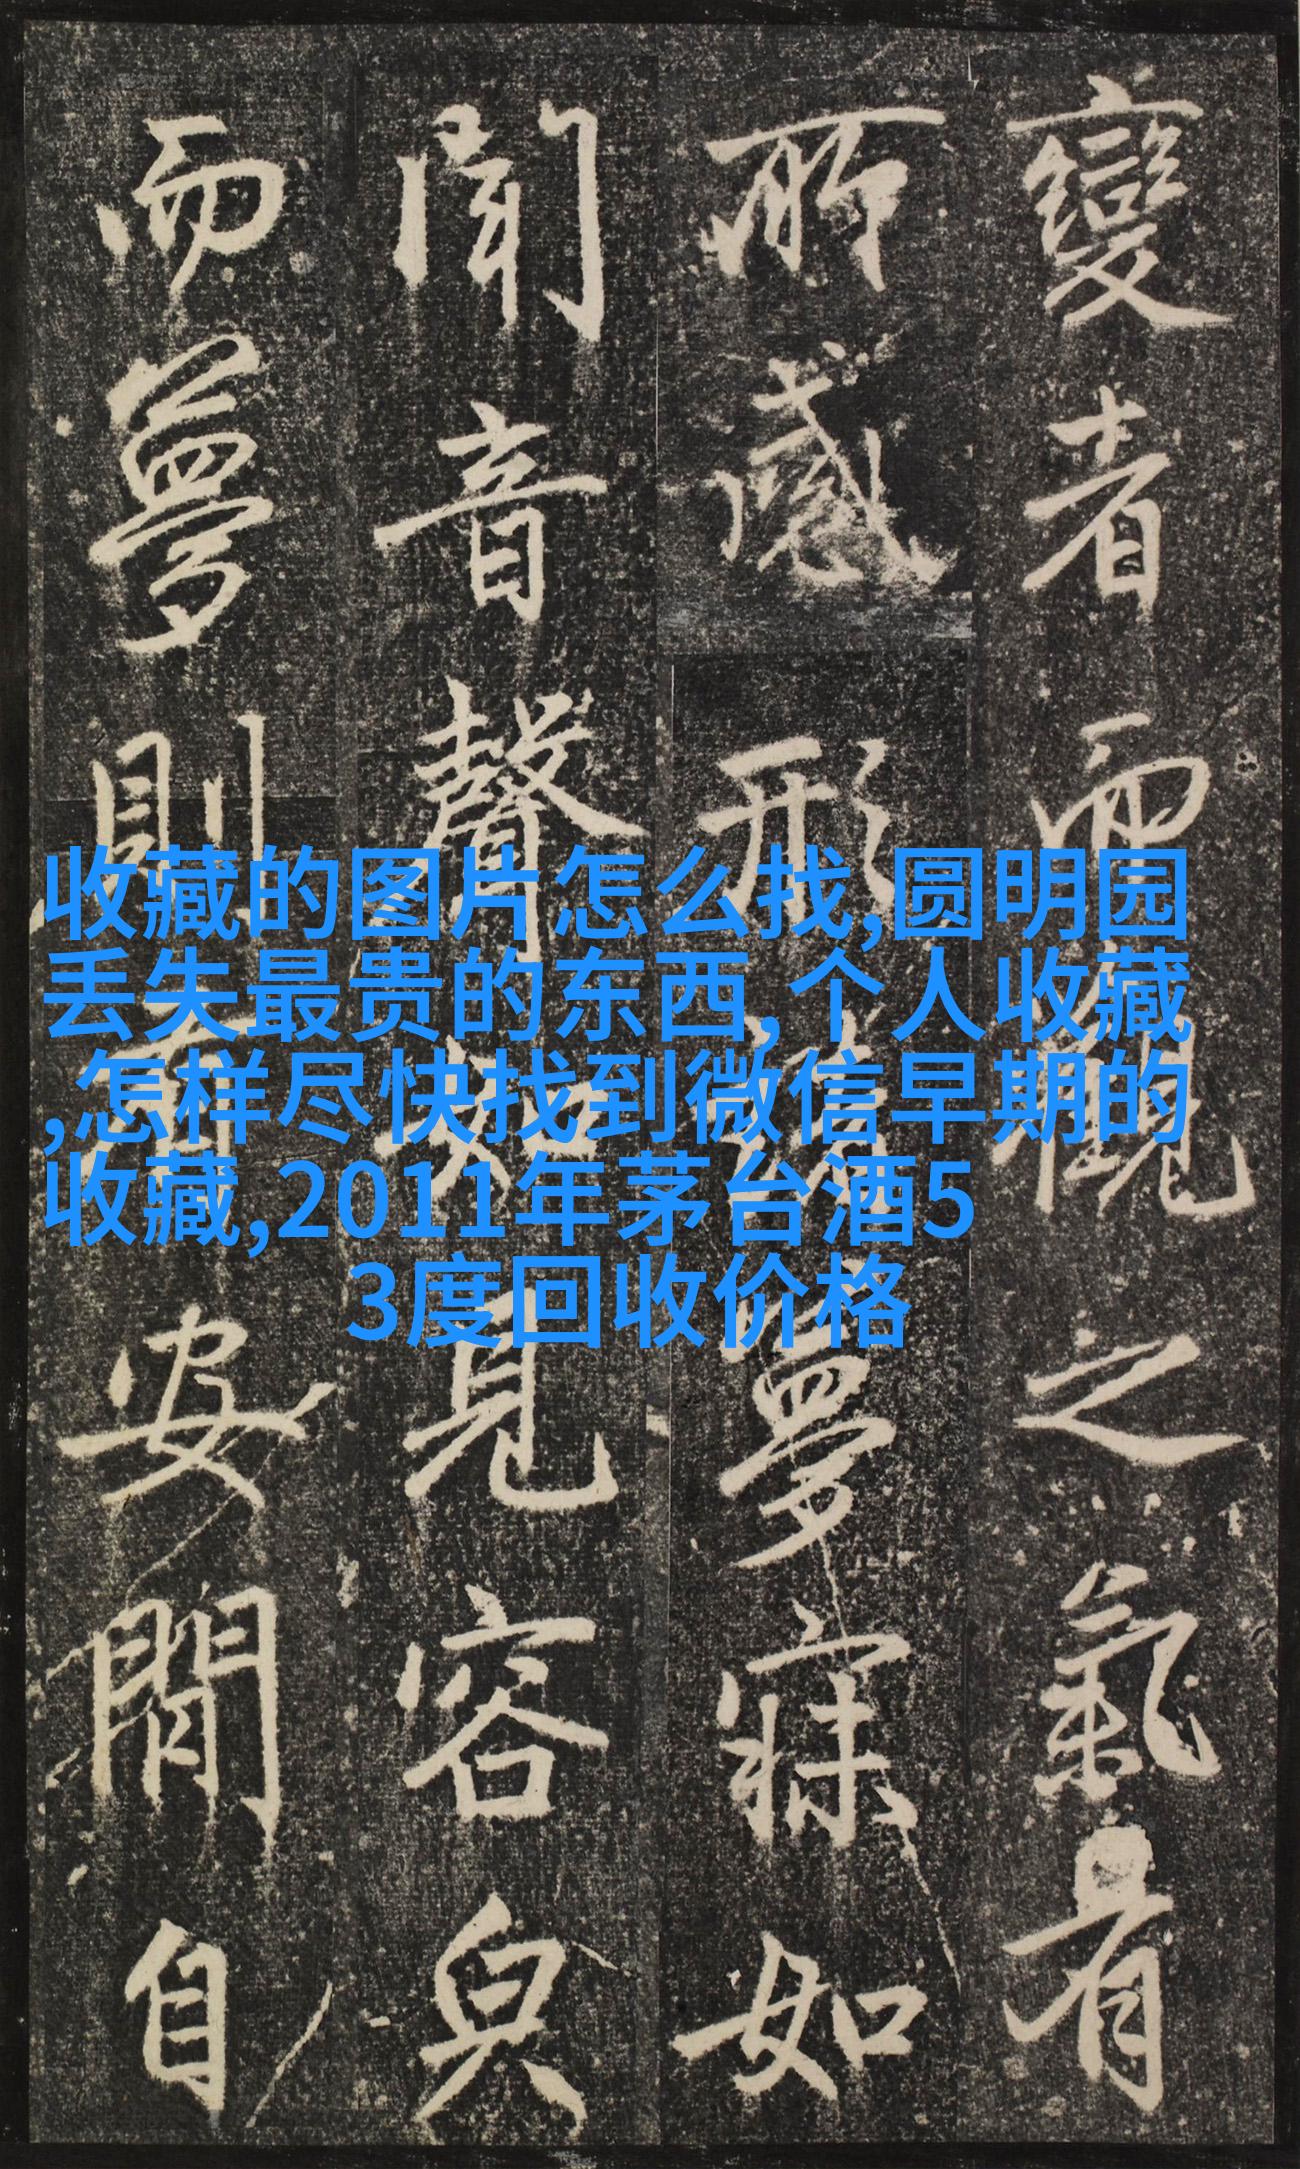 變者而觀之氣有
所感形諸夢寐如
聞音聲如見容皃
而夢則安閒自
收藏的图片怎么找,圆明园
丢失最贵的东西,个人收藏
,怎样尽快找到微信早期的
收藏,2011年茅台酒5
3度回收价格